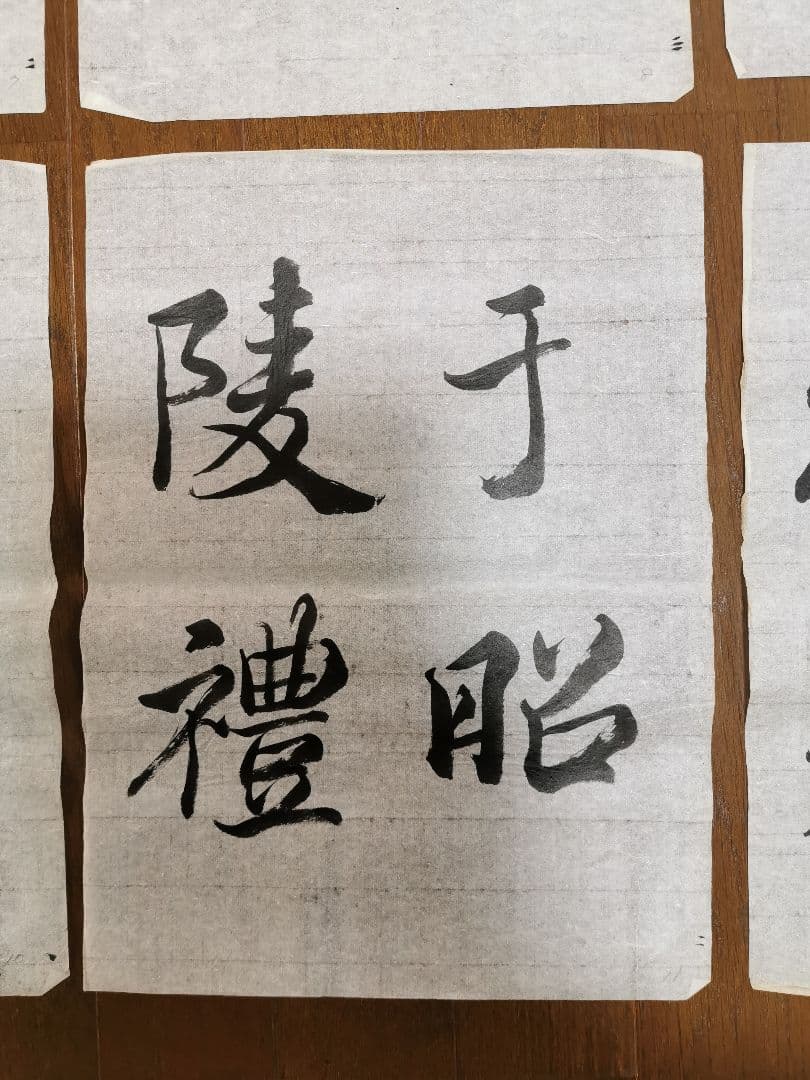 于昭
陵禮